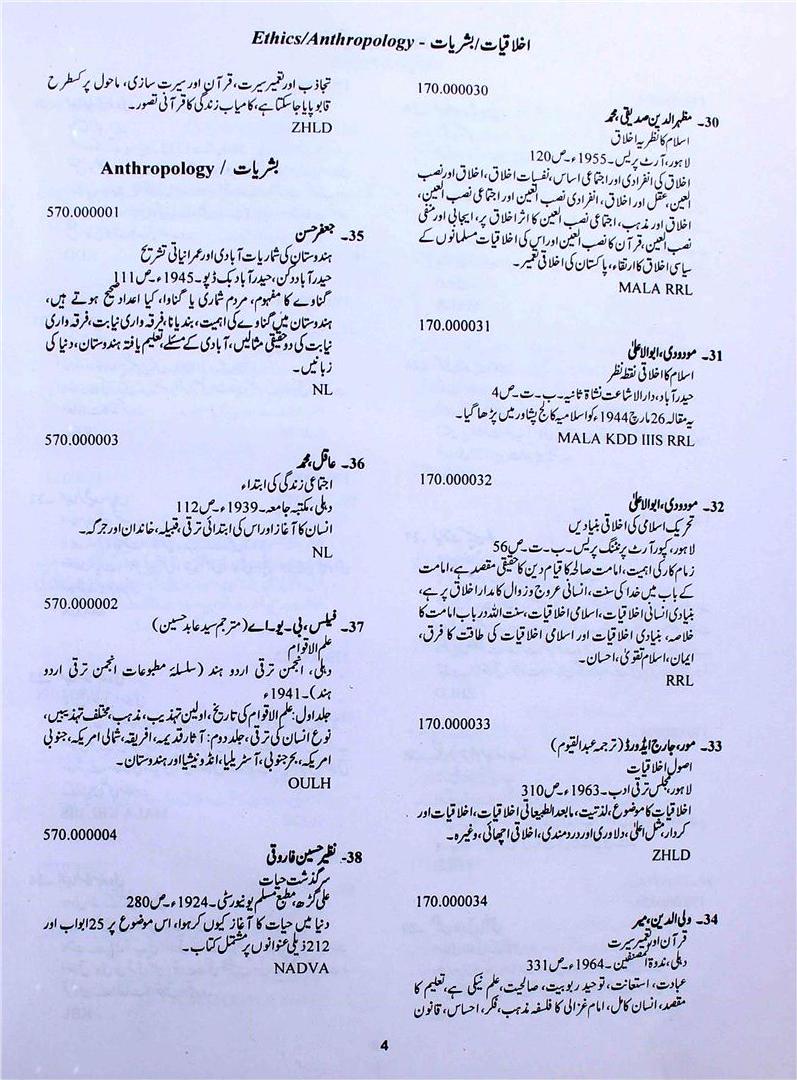 اخلاقیات/بشریات - Ethics/Anthropology
170.000030
30۔ مظہرالدین صدیقی، محمد
اسلام کا نظریہ اخلاق
لاہور، آرٹ پریس۔ 1955ء۔ ص120
اخلاق کی انفرادی اور اجتماعی اساس، نفسیات اخلاق، اخلاق اور نصب
العین، عقل اور اخلاق، انفرادی نصب العین اور اجتماعی نصب العین،
اخلاق اور مذہب، اجتماعی نصب العین کا اثر اخلاق پر، ایجابی اور منفی
نصب العین، قرآن کا نصب العین اور اس کی اخلاقیات مسلمانوں کے
سیاسی اخلاق کا ارتقاء، پاکستان کی اخلاقی تعمیر۔
MALA RRL
170.000031
31۔ مودودی، ابوالاعلیٰ
اسلام کا اخلاقی نقطہ نظر
حیدرآباد، دارالاشاعت نشاۃ ثانیہ۔ ب۔ت۔ ص4
یہ مقالہ 26 مارچ 1944ء کو اسلامیہ کالج پشاور میں پڑھا گیا۔
MALA KDD IIIS RRL
170.000032
32۔ مودودی، ابوالاعلیٰ
تحریک اسلامی کی اخلاقی بنیادیں
لاہور، کپور آرٹ پرنٹنگ پریس۔ ب۔ت۔ ص56
زمام کار کی اہمیت، امامت صالحہ کا قیام دین کا حقیقی مقصد ہے، امامت
کے باب میں خدا کی سنت، انسانی عروج و زوال کا مدار اخلاق پر ہے،
بنیادی انسانی اخلاقیات، اسلامی اخلاقیات، سنت اللہ در باب امامت کا
خلاصہ، بنیادی اخلاقیات اور اسلامی اخلاقیات کی طاقت کا فرق،
ایمان، اسلام تقویٰ، احسان۔
RRL
170.000033
33۔ مور، جارج ایڈورڈ (ترجمہ عبدالقیوم)
اصول اخلاقیات
لاہور، مجلس ترقی ادب۔ 1963ء۔ ص310
اخلاقیات کا موضوع، لذتیت، مابعد الطبیعاتی اخلاقیات، اخلاقیات اور
کردار، مثل اعلیٰ، دلاوری اور دردمندی، اخلاقی اچھائی، وغیرہ۔
ZHLD
170.000034
34۔ ولی الدین، میر
قرآن اور تعمیر سیرت
دہلی، ندوۃ المصنفین۔ 1964ء۔ ص331
عبادت، استعانت، توحید ربوبیت، صالحیت، علم نیکی ہے، تعلیم کا
مقصد، انسان کامل، امام غزالی کا فلسفہ مذہب، فکر، احساس، قانون
تجاذب اور تعمیر سیرت، قرآن اور سیرت سازی، ماحول پر کسطرح
قابو پایا جاسکتا ہے، کامیاب زندگی کا قرآنی تصور۔
ZHLD
بشریات / Anthropology
570.000001
35۔ جعفر حسن
ہندوستان کی شاریات آبادی اور عمرانیاتی تشریح
حیدرآباد دکن، حیدرآباد بک ڈپو۔ 1945ء۔ ص111
گناوے کا مفہوم، مردم شماری یا گناوا، کیا اعداد صحیح ہوتے ہیں،
ہندوستان میں گناوے کی اہمیت، بند یانا، فرقہ واری نیابت، فرقہ واری
نیابت کی دو حقیقی مثالیں، آبادی کے مسئلے، تعلیم یافتہ ہندوستان، دنیا کی
زبانیں۔
NL
570.000003
36۔ عاقل، محمد
اجتماعی زندگی کی ابتداء
دہلی، مکتبہ جامعہ۔ 1939ء۔ ص112
انسان کا آغاز اور اس کی ابتدائی ترقی، قبیلہ، خاندان اور جرگہ۔
NL
570.000002
37۔ فیلپس، بی۔ یو۔ اے (مترجم سید عابد حسین)
علم الاقوام
دہلی، انجمن ترقی اردو ہند (سلسلۂ مطبوعات انجمن ترقی اردو
ہند)۔ 1941ء
جلد اول: علم الاقوام کی تاریخ، اولین تہذیب، مذہب، مختلف تہذیبیں،
نوع انسان کی ترقی، جلد دوم: آثار قدیمہ، افریقہ، شمالی امریکہ، جنوبی
امریکہ، بحر جنوبی، آسٹریلیا، انڈونیشیا اور ہندوستان۔
OULH
570.000004
38۔ نظیر حسین فاروقی
سرگذشت حیات
علی گڑھ، مطبع مسلم یونیورسٹی۔ 1924ء۔ ص280
دنیا میں حیات کا آغاز کیوں کر ہوا، اس موضوع پر 25 ابواب اور
212 ذیلی عنوانوں پر مشتمل کتاب۔
NADVA
4